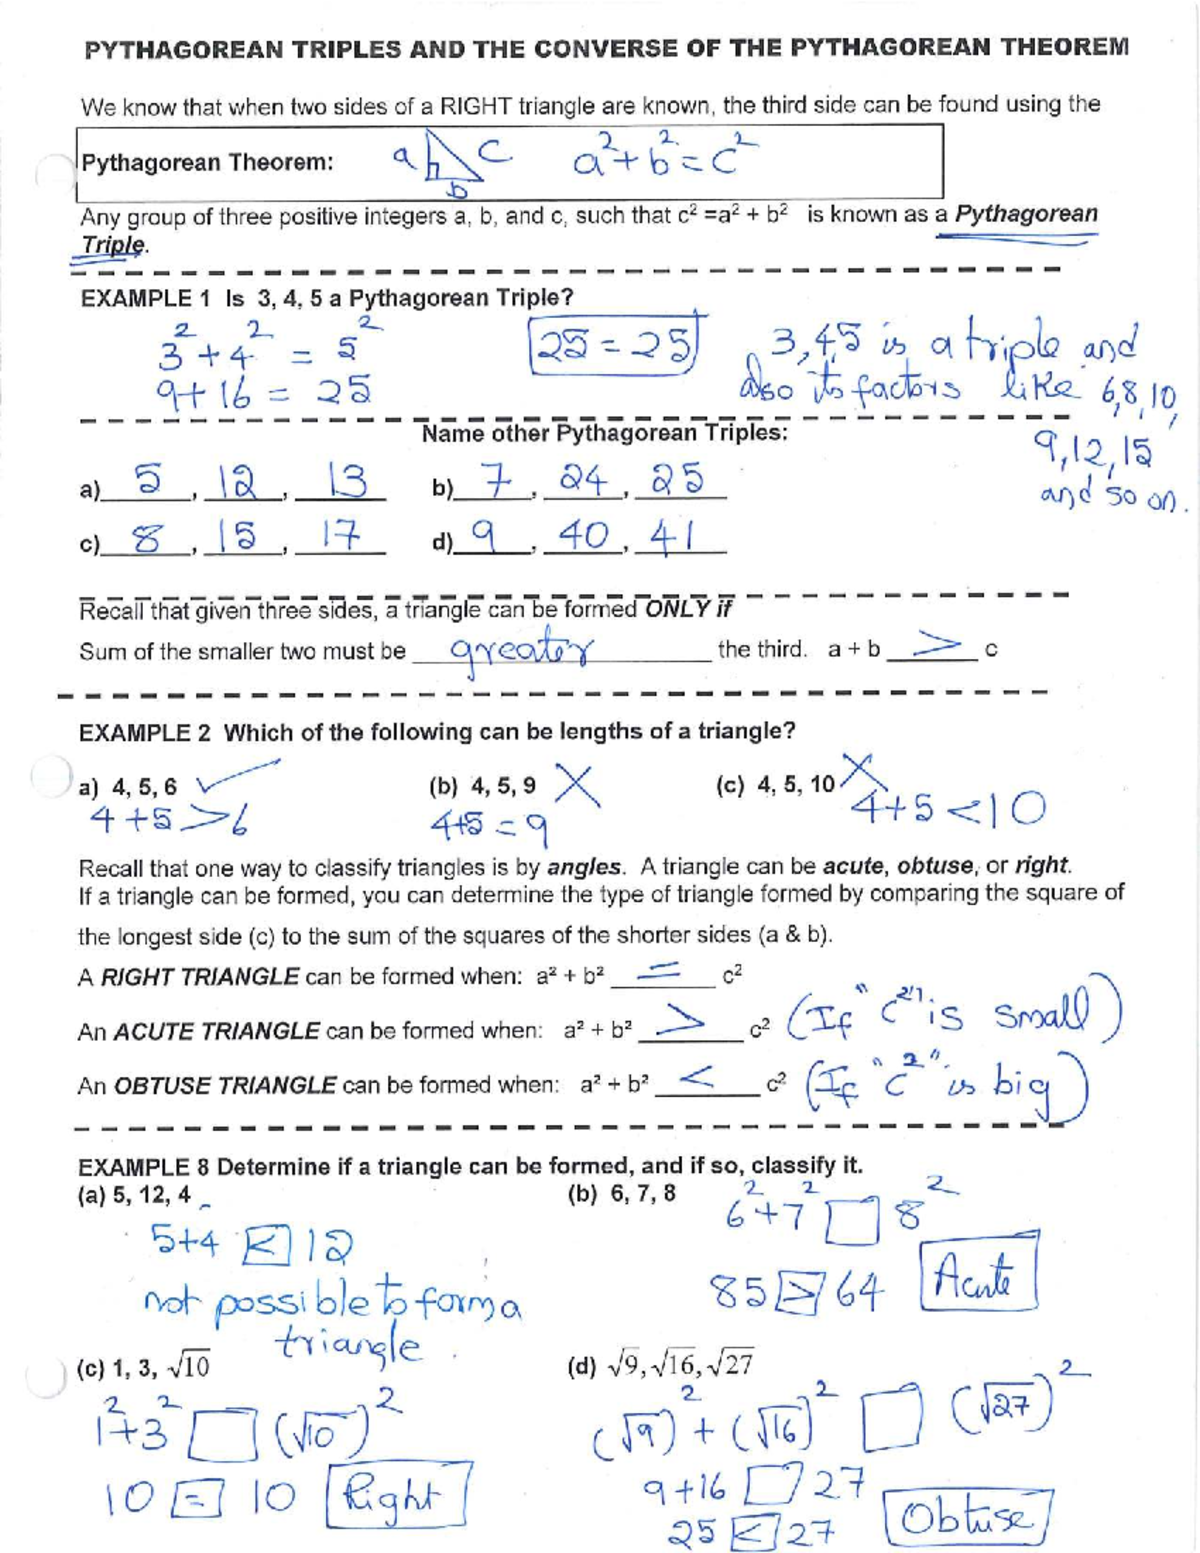 PYTHAGOREAN TRIPLES AND THE CONVERSE OF THE PYTHAGOREAN THEOREM
We know that when two sides of a RIGHT triangle are known, the third side can be found using the
Pythagorean Theorem: a b c a² + b² = c²
Any group of three positive integers a, b, and c, such that c² =a² + b² is known as a Pythagorean
Triple.
EXAMPLE 1 Is 3, 4, 5 a Pythagorean Triple?
3² + 4² = 5² 25 = 25 3,4,5 is a triple and
9 + 16 = 25 also its factors like 6,8,10,
Name other Pythagorean Triples: 9,12,15
a) 5, 12, 13 b) 7, 24, 25 and so on.
c) 8, 15, 17 d) 9, 40, 41
Recall that given three sides, a triangle can be formed ONLY if
Sum of the smaller two must be greater the third. a + b > c
EXAMPLE 2 Which of the following can be lengths of a triangle?
a) 4, 5, 6 ✓ (b) 4, 5, 9 X (c) 4, 5, 10 X
4 + 5 > 6 4+5 = 9 4+5 < 10
Recall that one way to classify triangles is by angles. A triangle can be acute, obtuse, or right.
If a triangle can be formed, you can determine the type of triangle formed by comparing the square of
the longest side (c) to the sum of the squares of the shorter sides (a & b).
A RIGHT TRIANGLE can be formed when: a² + b² = c²
An ACUTE TRIANGLE can be formed when: a² + b² > c² (If "c²" is small)
An OBTUSE TRIANGLE can be formed when: a² + b² < c² (If "c²" is big)
EXAMPLE 8 Determine if a triangle can be formed, and if so, classify it.
(a) 5, 12, 4 (b) 6, 7, 8 6² + 7² □ 8²
5+4 < 12
not possible to form a 85 > 64 Acute
triangle.
(c) 1, 3, √10 (d) √9, √16, √27
1² + 3² □ (√10)² (√9)² + (√16)² □ (√27)²
10 = 10 Right 9 + 16 □ 27
25 < 27 Obtuse